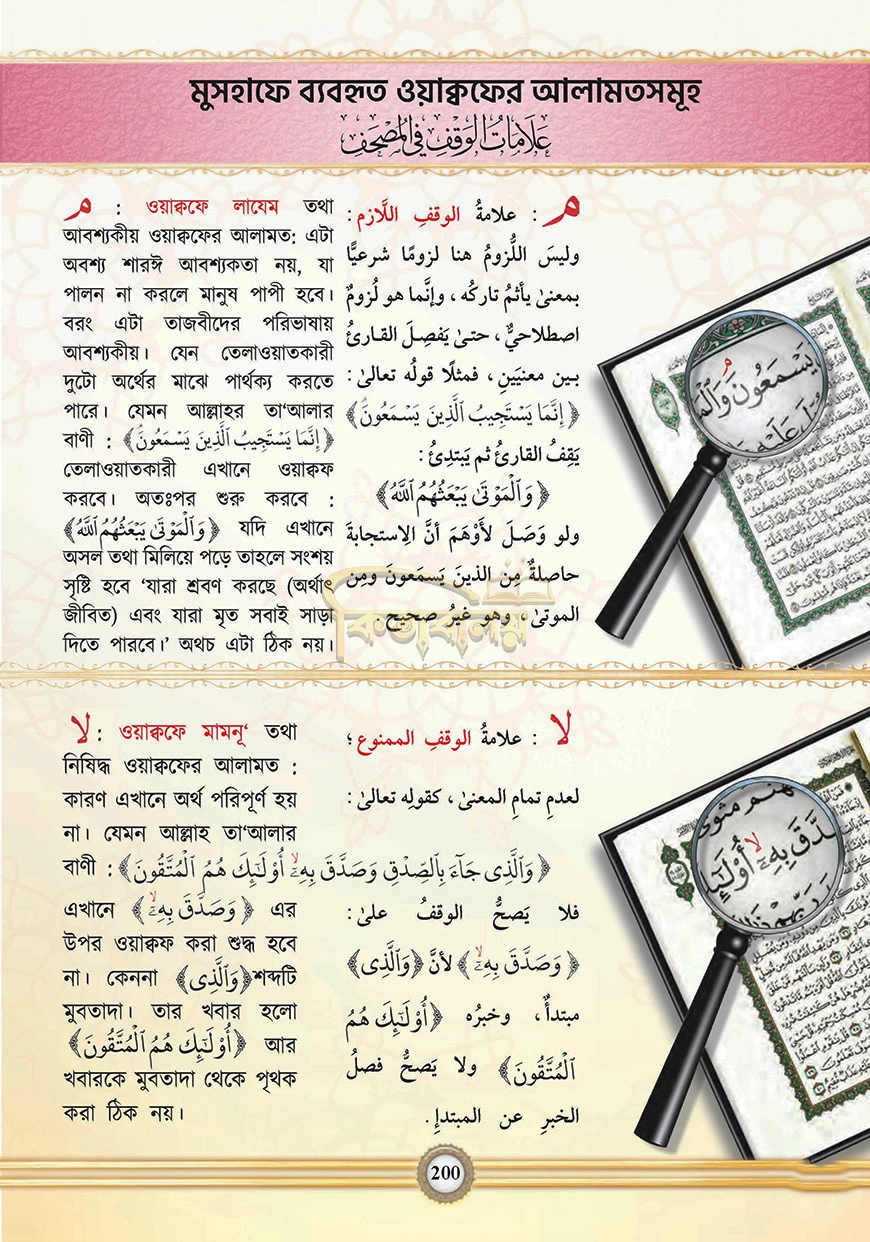 মুসহাফে ব্যবহৃত ওয়াক্বফের আলামতসমূহ
عَلَامَاتُ الوَقْفِ فِي المُصْحَفِ
م : ওয়াক্বফে লাযেম তথা
আবশ্যকীয় ওয়াক্বফের আলামত: এটা
অবশ্য শারঈ আবশ্যকতা নয়, যা
পালন না করলে মানুষ পাপী হবে।
বরং এটা তাজবীদের পরিভাষায়
আবশ্যকীয়। যেন তেলাওয়াতকারী
দুটো অর্থের মাঝে পার্থক্য করতে
পারে। যেমন আল্লাহর তা'আলার
বাণী : ﴿إِنَّمَا يَسْتَجِيبُ الَّذِينَ يَسْمَعُونَ﴾
তেলাওয়াতকারী এখানে ওয়াক্বফ
করবে। অতঃপর শুরু করবে :
﴿وَالْمَوْتَىٰ يَبْعَثُهُمُ اللَّهُ﴾ যদি এখানে
অসল তথা মিলিয়ে পড়ে তাহলে সংশয়
সৃষ্টি হবে ‘যারা শ্রবণ করছে (অর্থাৎ
জীবিত) এবং যারা মৃত সবাই সাড়া
দিতে পারবে।’ অথচ এটা ঠিক নয়।
م : علامةُ الوقفِ اللَّازم :
وليسَ اللُّزومُ هنا لزومًا شرعيًّا
بمعنىٰ يأثمُ تاركُه ، وإنَّما هو لُزومٌ
اصطلاحيٌّ ، حتىٰ يَفصِلَ القارئُ
بين معنيَينِ ، فمثلًا قولُه تعالىٰ :
﴿إِنَّمَا يَسْتَجِيبُ الَّذِينَ يَسْمَعُونَ﴾
يَقِفُ القارئُ ثم يَبتدِئُ :
﴿وَالْمَوْتَىٰ يَبْعَثُهُمُ اللَّهُ﴾
ولو وَصَلَ لأَوْهَمَ أنَّ الِاستجابةَ
حاصلةٌ مِن الذينَ يَسمَعونَ ومِن
الموتىٰ ، وهو غيرُ صحيح.
কিতাবালয়
يَسْمَعُونَ وَالْمَ
لَا : ওয়াক্বফে মামনূ‘ তথা
নিষিদ্ধ ওয়াক্বফের আলামত :
কারণ এখানে অর্থ পরিপূর্ণ হয়
না। যেমন আল্লাহ তা'আলার
বাণী : ﴿وَالَّذِي جَآءَ بِالصِّدْقِ وَصَدَّقَ بِهِۦٓ ۙ أُوْلَٰٓئِكَ هُمُ الْمُتَّقُونَ﴾
এখানে ﴿وَصَدَّقَ بِهِۦٓ ۙ﴾ এর
উপর ওয়াক্বফ করা শুদ্ধ হবে
না। কেননা ﴿وَالَّذِى﴾ শব্দটি
মুবতাদা। তার খবার হলো
﴿أُوْلَٰٓئِكَ هُمُ الْمُتَّقُونَ﴾ আর
খবারকে মুবতাদা থেকে পৃথক
করা ঠিক নয়।
لا : علامةُ الوقفِ الممنوع ؛
لعدمِ تمامِ المعنىٰ ، كقولِه تعالىٰ :
فلا يَصحُّ الوقفُ علىٰ :
﴿وَصَدَّقَ بِهِۦٓ ۙ﴾ لأنَّ ﴿وَالَّذِى﴾
مبتدأٌ، وخبرُه ﴿أُوْلَٰٓئِكَ هُمُ
الْمُتَّقُونَ﴾ ولا يَصحُّ فصلُ
الخبرِ عن المبتدإِ.
صَدَّقَ بِهِۦٓ ۙ أُوْلَٰٓئِكَ
200